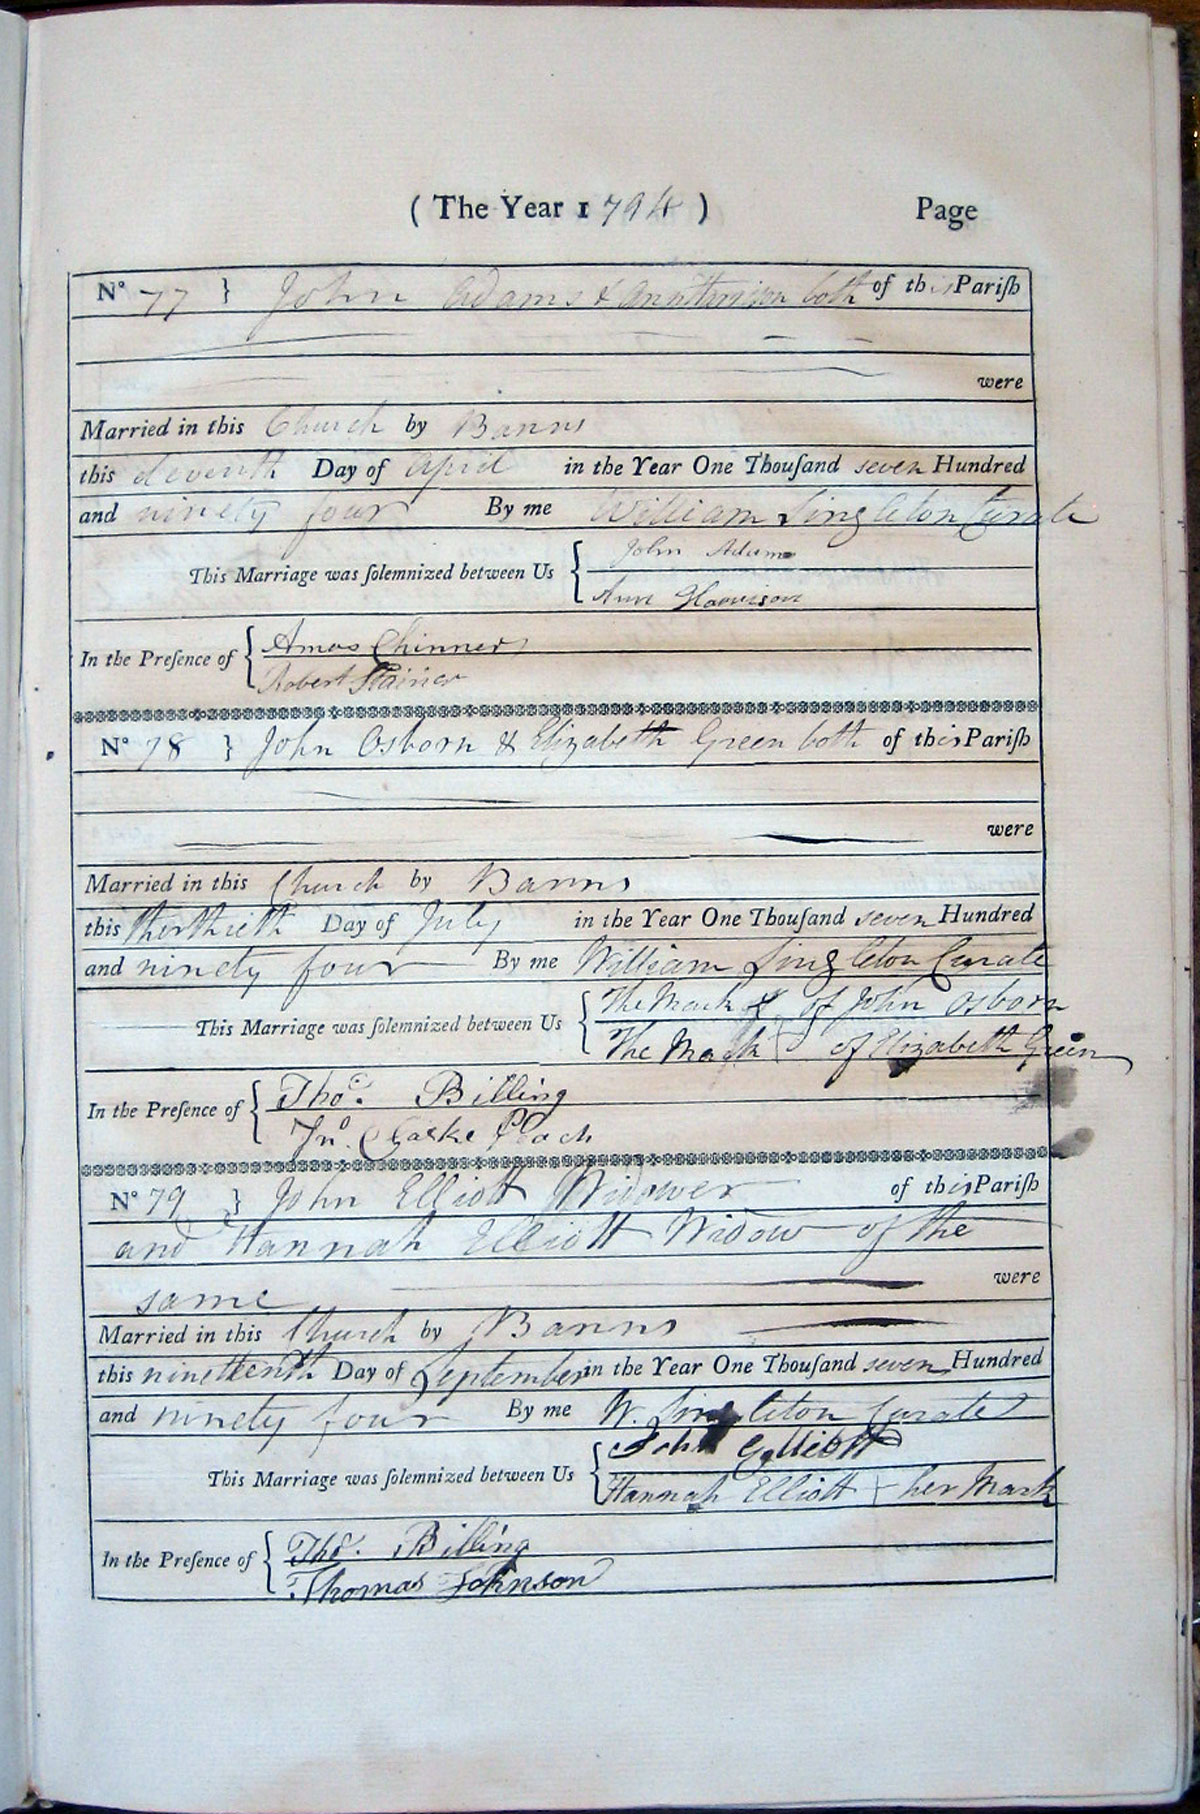 ( The Year 1794 ) Page
No 77 } John Adams & Ann Harrison both of this Pariſh
were
Married in this Church by Banns
this eleventh Day of April in the Year One Thouſand seven Hundred
and ninety four By me William Singleton Curate
This Marriage was ſolemnized between Us { John Adams
Ann Harrison
In the Preſence of { Amos Chinner
Robert
No 78 } John Osborn & Elizabeth Green both of this Pariſh
were
Married in this Church by Banns
this therthieth Day of July in the Year One Thouſand seven Hundred
and ninety four By me William Singleton Curate
This Marriage was ſolemnized between Us { The Mark X of John Osborn
The Mark of Elizabeth Green
In the Preſence of { Thos. Billing
Jno. Clarke
No 79 } John Elliott Widower of this Pariſh
and Hannah Elliott Widow of the
same were
Married in this Church by Banns
this nineteenth Day of September in the Year One Thouſand seven Hundred
and ninety four By me W. Singleton Curate
This Marriage was ſolemnized between Us { John Elliott
Hannah Elliott + her Mark
In the Preſence of { Thos. Billing
Thomas Johnson